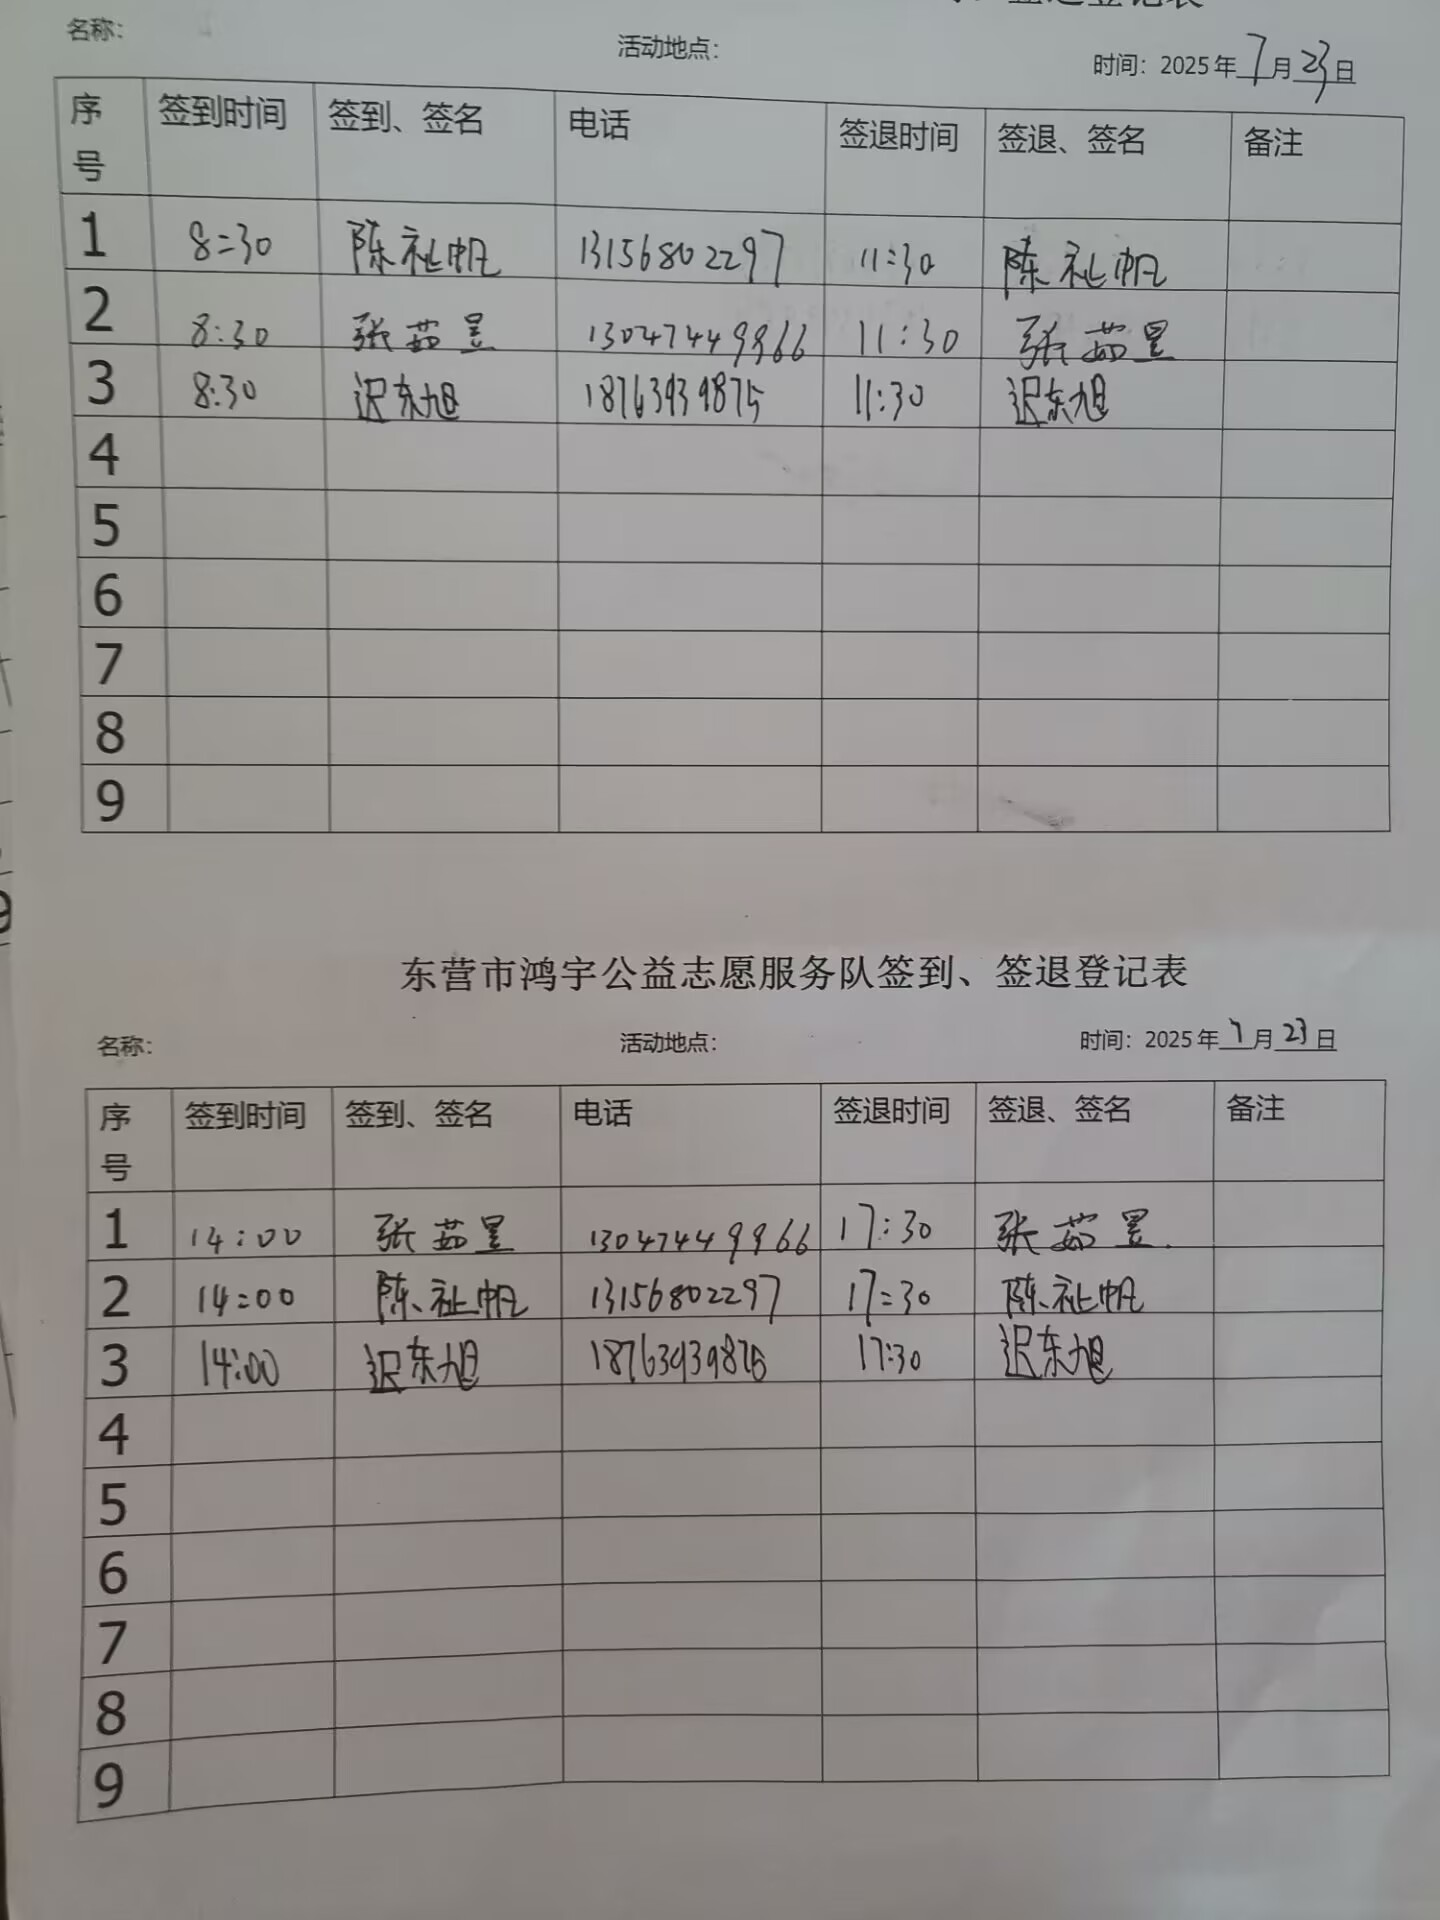 签退登记表
名称：
活动地点：
时间：2025年7月23日
序号 签到时间 签到、签名 电话 签退时间 签退、签名 备注
1 8:30 陈祉帆 13156802297 11:30 陈祉帆
2 8:30 张茹昱 13047449966 11:30 张茹昱
3 8:30 迟东旭 18763939875 11:30 迟东旭
4
5
6
7
8
9
东营市鸿宇公益志愿服务队签到、签退登记表
名称：
活动地点：
时间：2025年7月23日
序号 签到时间 签到、签名 电话 签退时间 签退、签名 备注
1 14:00 张茹昱 13047449966 17:30 张茹昱.
2 14:00 陈祉帆 13156802297 17:30 陈祉帆
3 14:00 迟东旭 18763939875 17:30 迟东旭
4
5
6
7
8
9